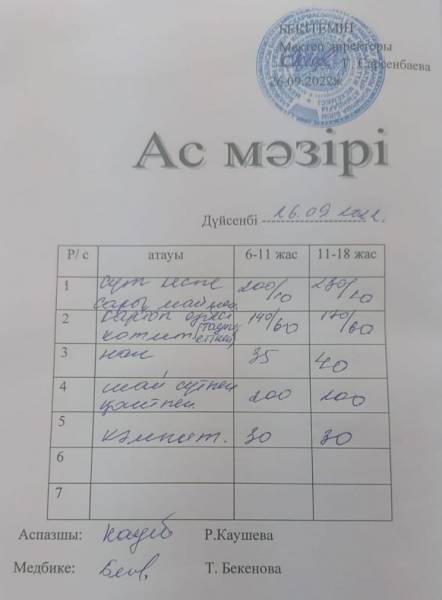 БЕКІТЕМІН
Мектеп директоры
Г. Сарсенбаева
26.09.2022ж
Ас мәзірі
Дүйсенбі 26.09.2022.
Р/ с атауы 6-11 жас 11-18 жас
1 сүт кеспе сары маймен 200/10 250/10
2 картоп езбесі котлет (тауық етінен) 140/60 170/60
3 нан 35 40
4 шай сүтпен қантпен 200 200
5 кәмпит. 30 30
6
7
Аспазшы: Р.Каушева
Медбике: Т. Бекенова